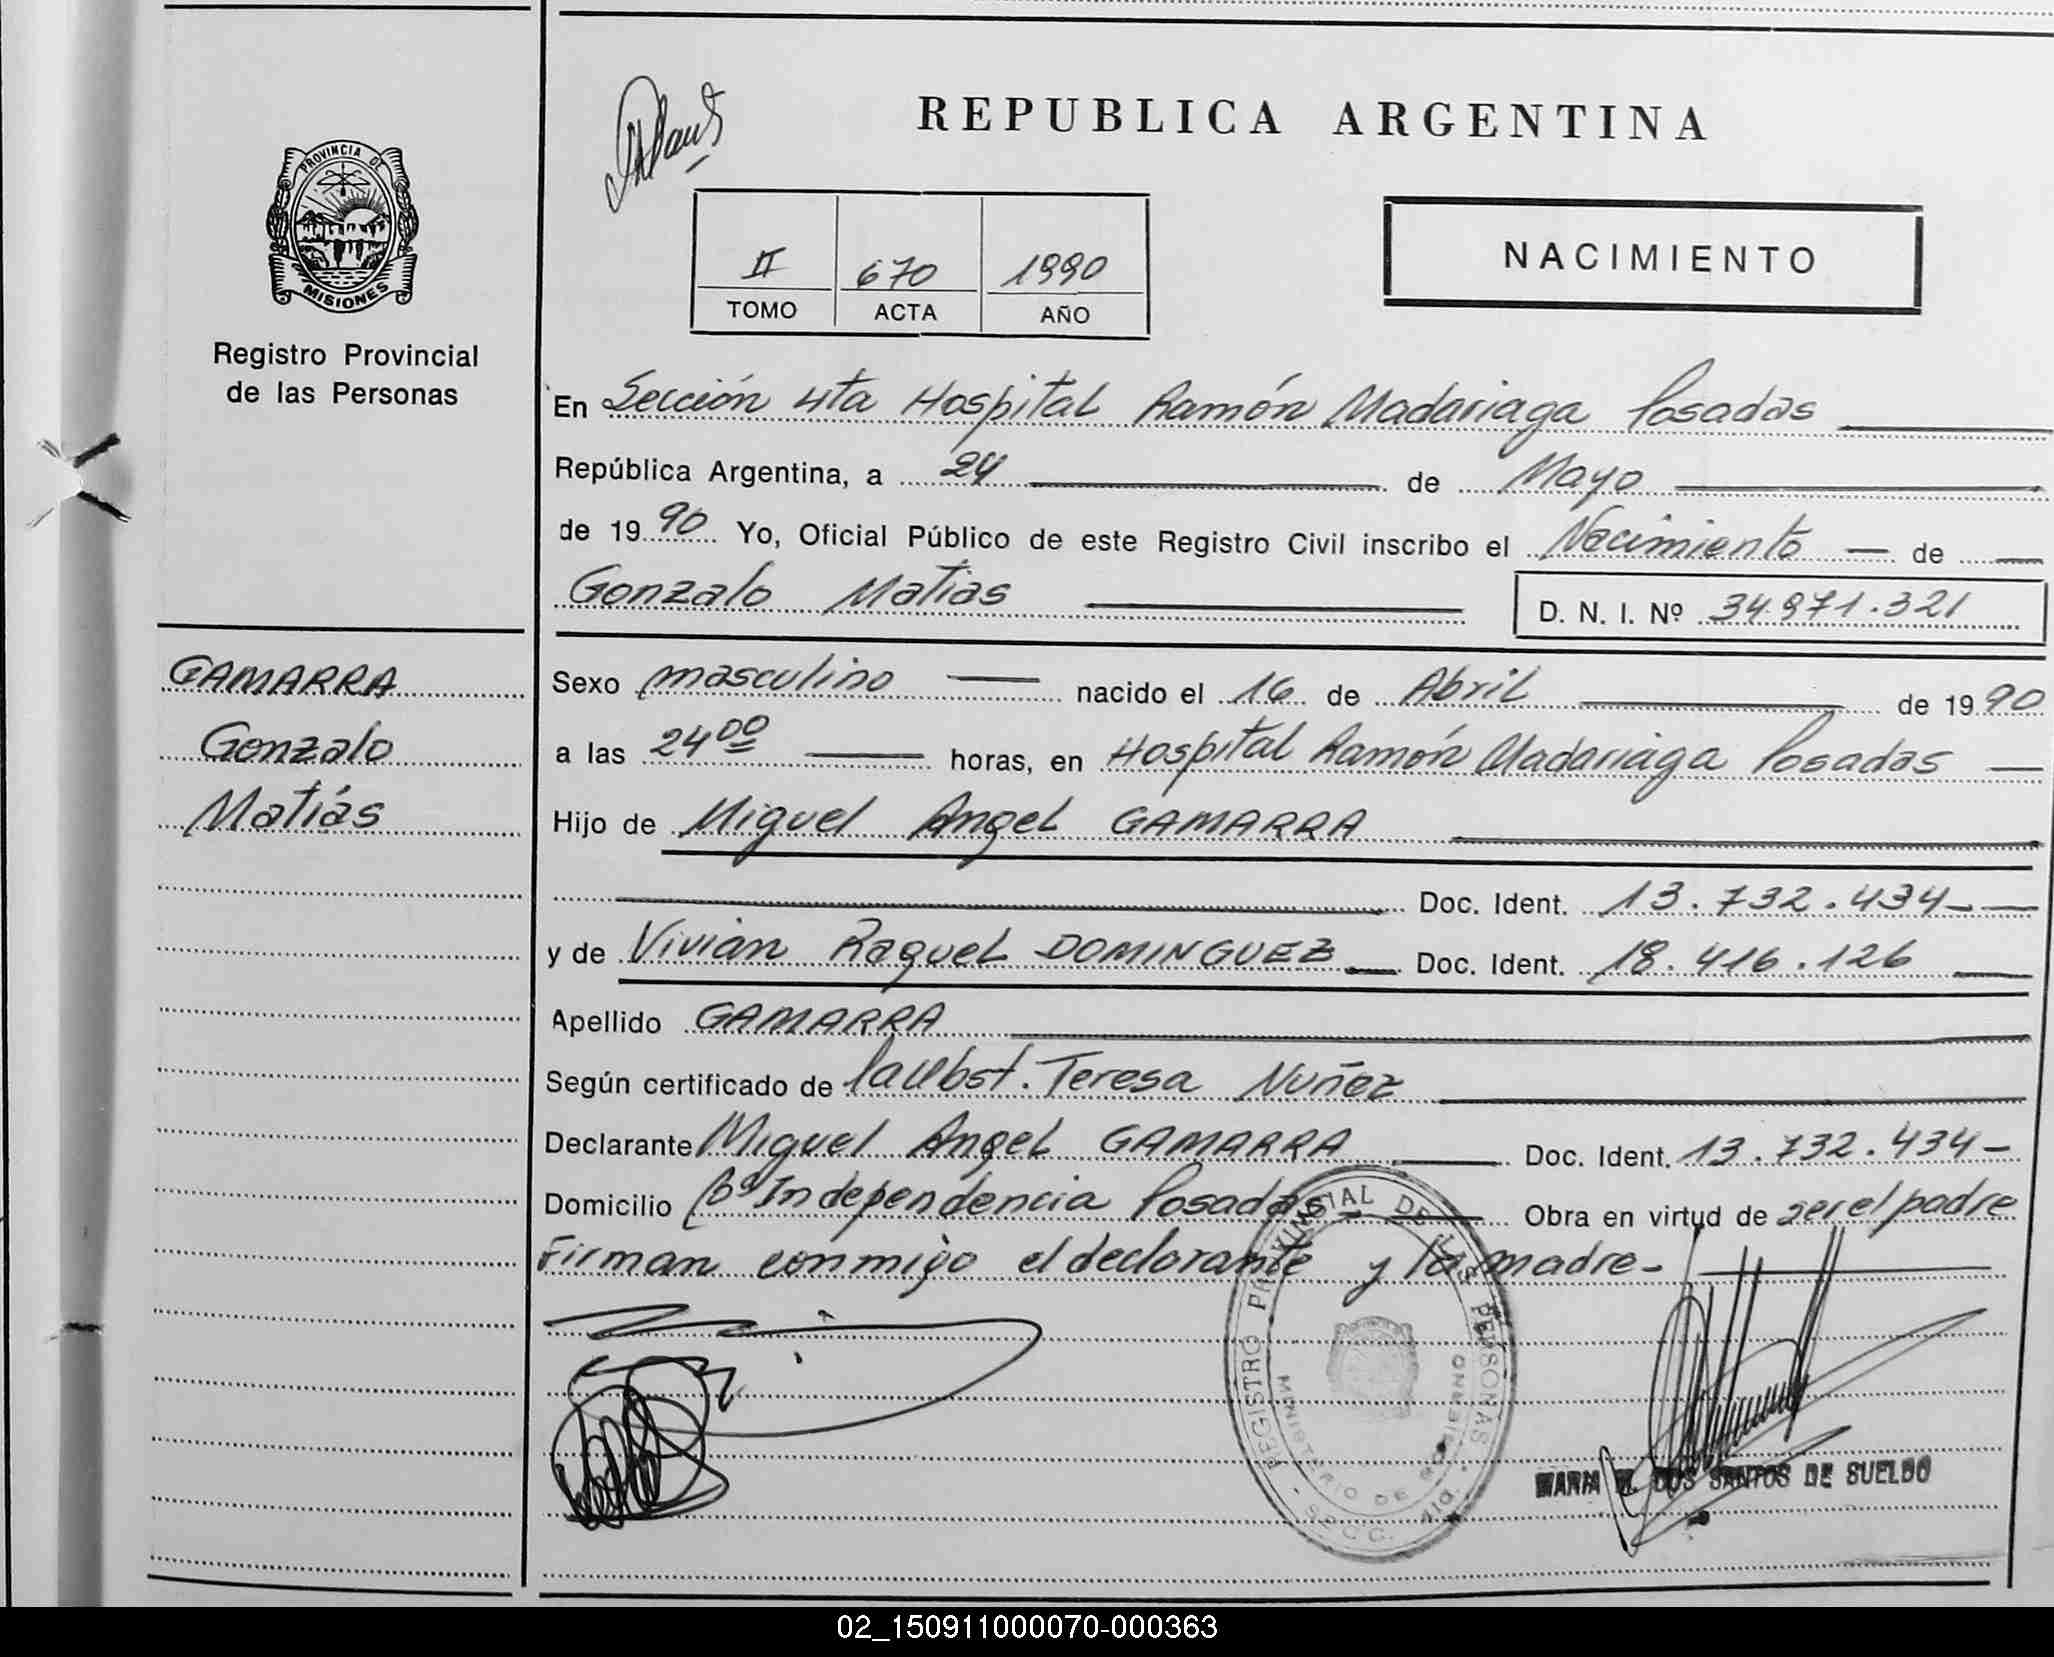 REPUBLICA ARGENTINA
PROVINCIA DE
MISIONES
Registro Provincial
de las Personas
II 670 1990
TOMO ACTA AÑO
NACIMIENTO
En Sección 4ta Hospital Ramón Madariaga Posadas
República Argentina, a 24 de Mayo
de 1990 Yo, Oficial Público de este Registro Civil inscribo el Nacimiento de
Gonzalo Matias D. N. I. Nº 34.971.321
GAMARRA
Gonzalo
Matiás
Sexo masculino nacido el 16 de Abril de 1990
a las 24 00 horas, en Hospital Ramón Madariaga Posadas
Hijo de Miguel Angel GAMARRA
Doc. Ident. 13.732.434
y de Vivian Raquel DOMINGUEZ Doc. Ident. 18.416.126
Apellido GAMARRA
Según certificado de la Obst. Teresa Nuñez
Declarante Miguel Angel GAMARRA Doc. Ident. 13.732.434
Domicilio Bº Independencia Posadas Obra en virtud de ser el padre
Firman conmigo el declarante y la madre
REGISTRO PROVINCIAL DE LAS PERSONAS
MINISTERIO DE GOBIERNO
SECC. 4ta.
MARIA DOS SANTOS DE SUELDO
02_150911000070-000363